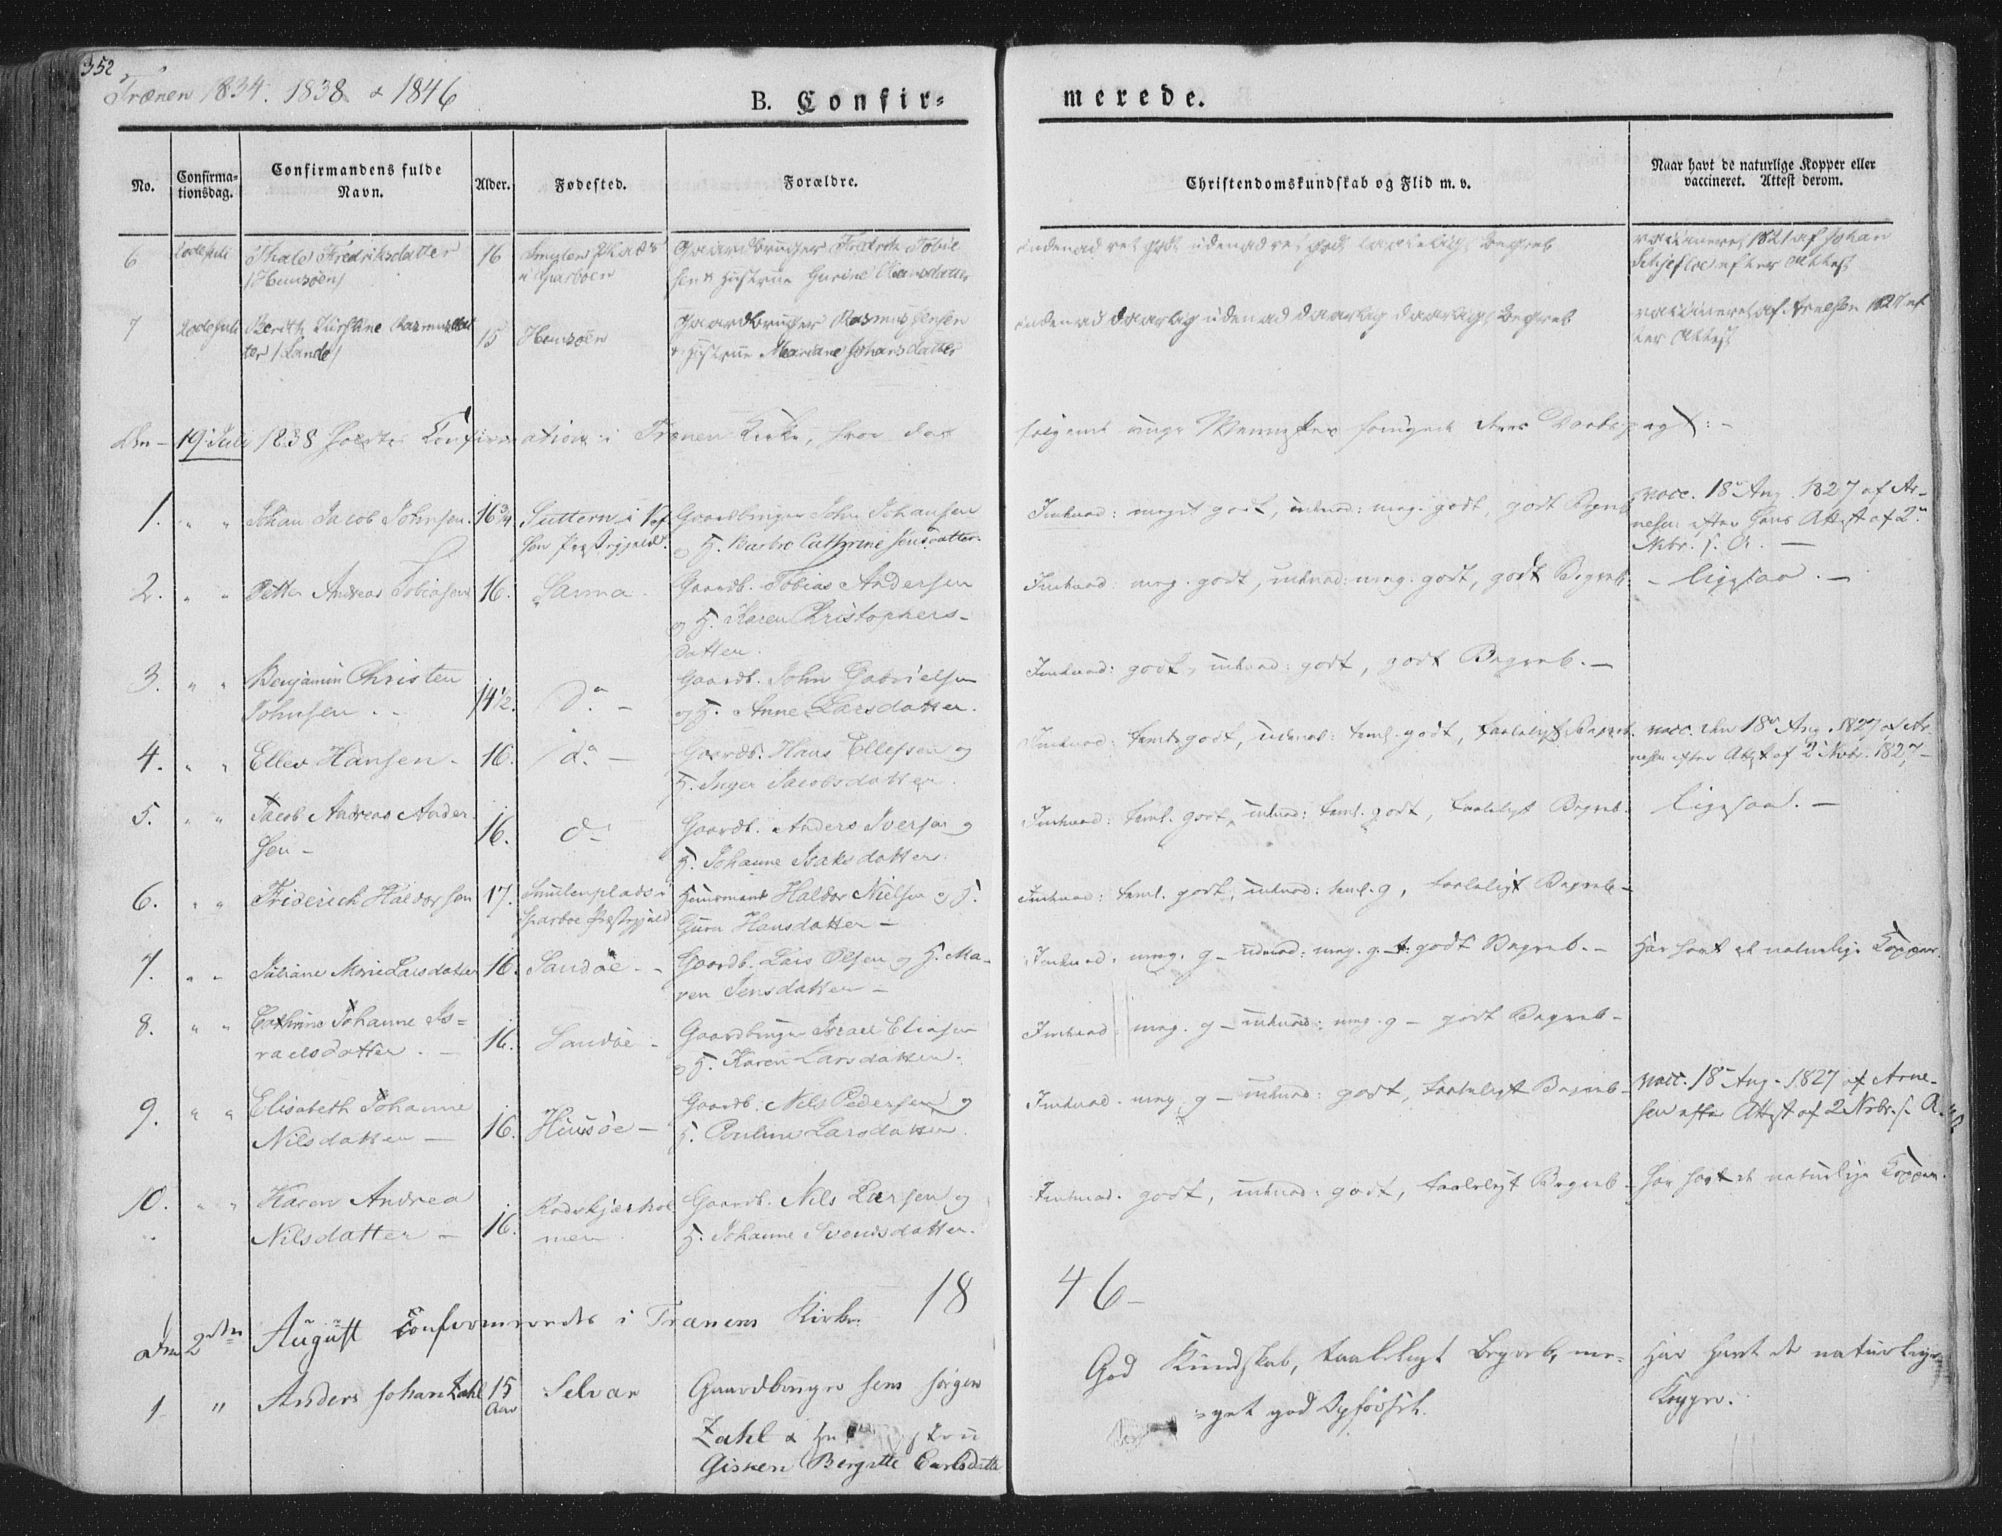 352
Trænen 1834. 1838 & 1846
B. Confirmerede.
No. Confirmationsdag. Confirmandens fulde Navn. Alder. Fødested. Forældre. Christendomskundskab og Flid m. v. Naar havt de naturlige Kopper eller vaccineret. Attest derom.
6 Thale Fredriksdatter 16 Gaardbruger Fredrik Tobie
/Huusøen/ i Sparboen sen & Hustrue Gurine Hansdatter
vaccineret 1821 af Johan
efter Attest
7 Berith Kirstine Rasmusdat 15 Huusøen Gaardbruger Rasmus Jensen
ter /Sande/ & Hustrue Mariane Johansdatter
indenad daarlig udenad daarlig daarligt Begreb
vaccineret af Arnesen 1827 ef
ter Attest
Den 19 Juli 1838 holdtes Confirmation i Trænen Kirke, hvor de
følgende unge Mennesker fornyede deres Daabspagt: -
1. " " Johan Jacob Johnsen. 16 3/4 Gaardbruger John Johansen
Præstegjeld. og H. Barbro Cathrine Jensdatter.
Indenad: meget godt, udenad: meg. godt, godt Begreb
vacc. 18 Aug. 1827 af Ar-
nesen efter hans Attest af 2
Nvbr. s. A. -
2. " " Petter Andreas Tobiasen 16. Sanna. Gaardb. Tobias Andersen
og H. Karen Christophers-
datter.
Indenad: meg. godt, udenad: meg. godt, godt Begreb. - ligesaa. -
3. " " Benjamin Christen 14 1/2. do - Gaardb. John Gabrielsen
Johnsen. og H. Anne Larsdatter.
Indenad: godt, udenad: godt, godt Begreb. -
4. " " Ellev Hansen. 16. do - Gaardb. Hans Ellefsen og
H. Inger Jacobsdatter.
Indenad: teml. godt, udenad: teml. godt, taaleligt Begreb.
vacc. den 18 Aug. 1827 af Ar-
nesen efter Attest af 2 Nvbr. 1827 -
5. " " Jacob Andreas Ander- 16. do Gaardb. Anders Iversen og
sen - H. Johanne Isaksdatter.
Indenad: teml. godt, udenad: teml. godt, taaleligt Begreb. ligesaa. -
6. " " Friderich Haldorsen 17. Huusmand Haldor Nielsen og H.
Sparboe Præstegjeld Guru Hansdatter -
Indenad: teml. godt, udenad: teml. g, taaleligt Begreb -
7. " " Juliane Marie Larsdatter 16. Sandøe - Gaardb. Lars Olsen og H. Ma-
ren Jensdatter -
Indenad: meg. g - udenad: meg. g - godt Begreb. - Har havt de naturlige Kopper.
8. " " Cathrine Johanne Is= 16. Sandøe - Gaardbruger Israel Eliasen
raelsdatter. - og H. Karen Larsdatter.
Indenad: meg. g - udenad: meg. g - godt Begreb -
9. " " Elisabeth Johanne 16. Huusøe - Gaardb. Nels Pedersen og
Nilsdatter - H. Pauline Larsdatter.
Indenad: meg. g - udenad: godt, taaleligt Begreb -
vacc. 18 Aug. 1827 af Arne-
sen efter Attest af 2 Nvbr. s. A.
10. " " Karen Andrea 16. Rødskjærhol Gaardb. Nils Larsen og
Nilsdatter - men. H. Johanne Svendsdatter.
Indenad: godt, udenad: godt, taaleligt Begreb - har havt de naturlige Kopper.
18 46 -
Den 2den August Confirmeredes i Trænens Kirke.
1 " Anders Johan Zahl 15 Selvær Gaardbruger Jens Jørgen
Aar Zahl &
Gisken Bergitte Carlsdatter
God Kundskab, taaleligt Begreb, me=
=get god Opførsel.
Har havt de naturlige
Kopper.